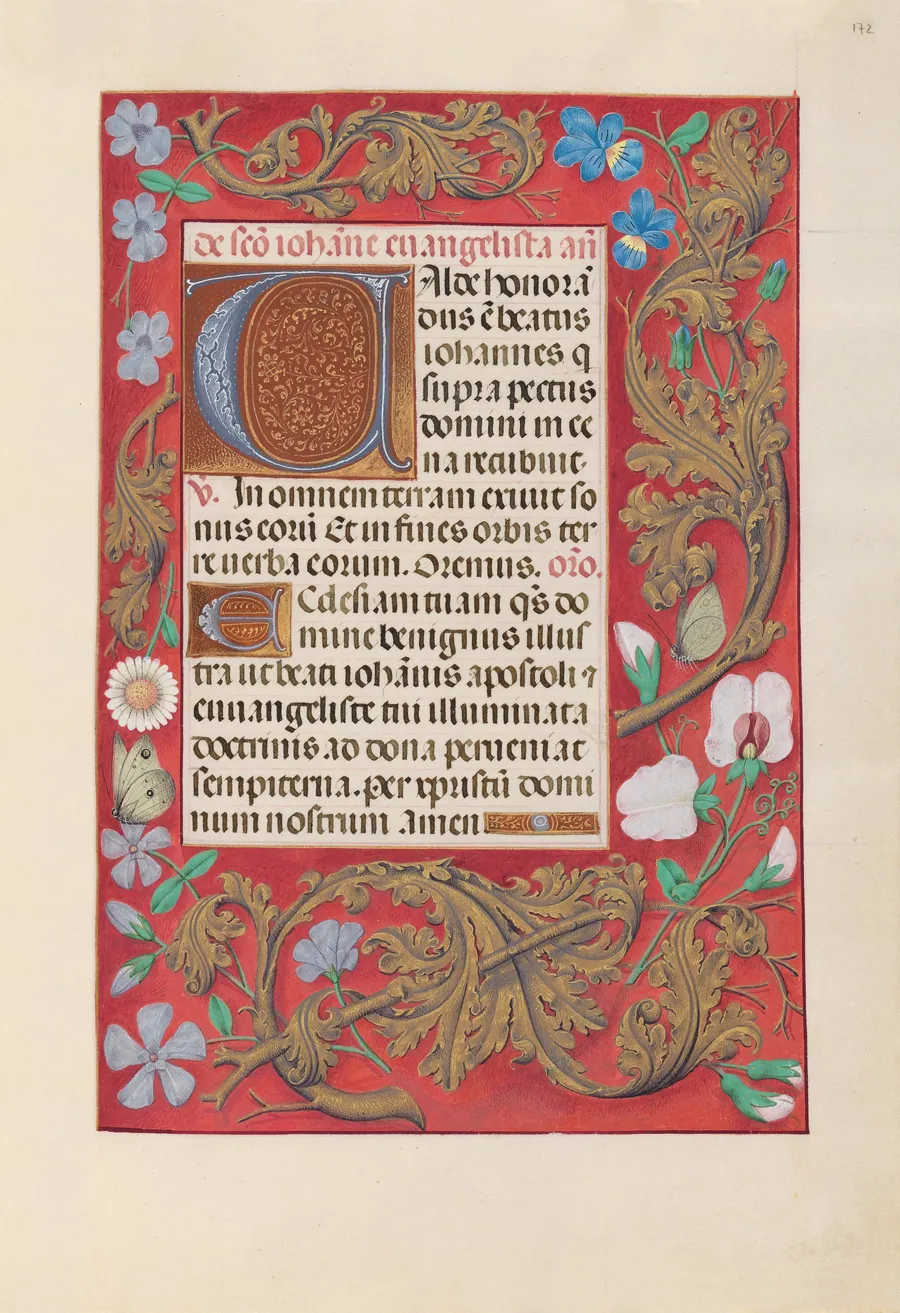 172
de scō iohāne euangelista añ
Valde honorā
dus ē beatus
iohannes q
supra pectus
domini in ce
na recubuit.
V. In omnem terram exiuit so
nus eorū Et in fines orbis ter
re uerba eorum. Oremus. orō.
Ecclesiam tuam qs̄ do
mine benignus illus
tra ut beati iohānis apostoli ⁊
euuangeliste tui illuminata
doctrinis ad dona perueniat
sempiterna. per xpristū domi
num nostrum Amen